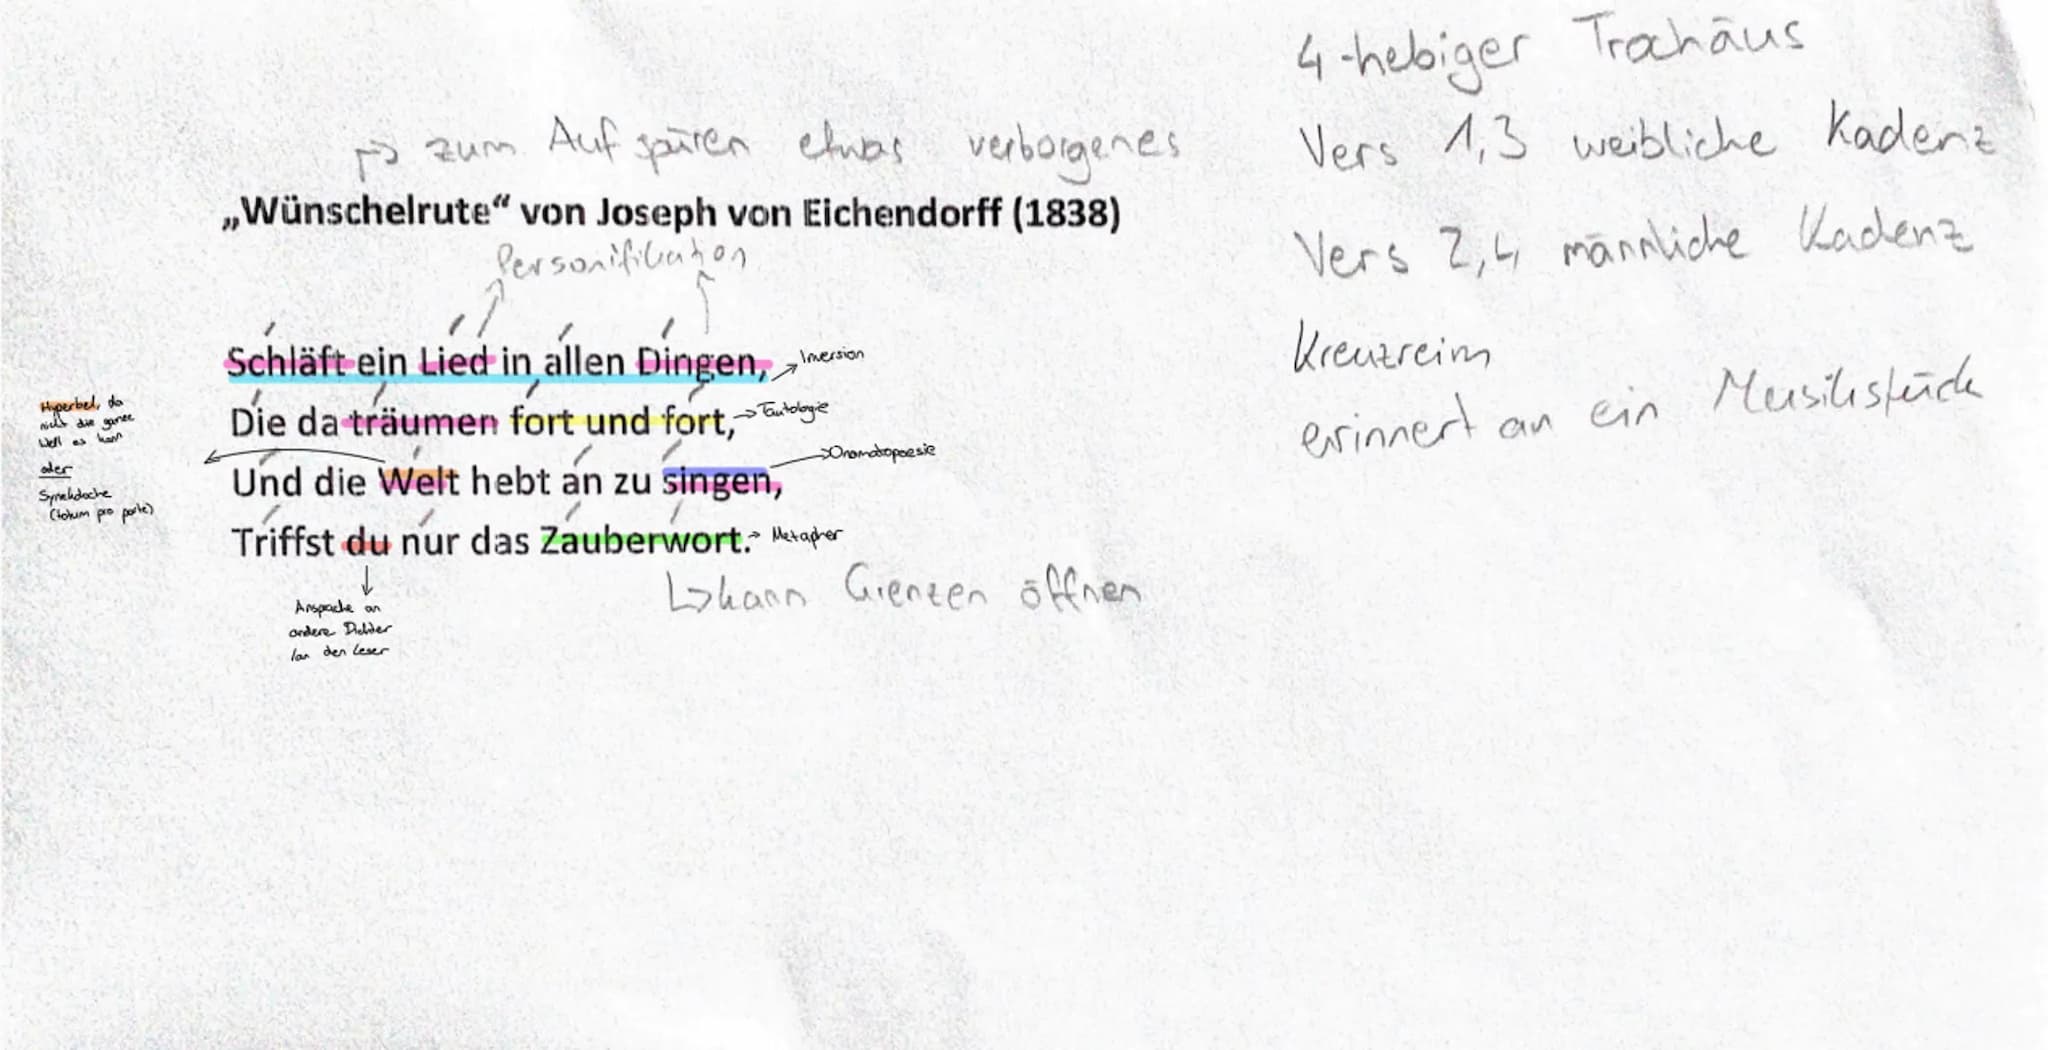 4-hebiger Trochäus
Vers 1,3 weibliche Kadenz
Vers 2,4 männliche Kadenz
Kreuzreim
erinnert an ein Musikstück
↳ zum Aufspüren etwas verborgenes
„Wünschelrute“ von Joseph von Eichendorff (1838)
Personifikation
Schläft ein Lied in allen Dingen, → Inversion
Die da träumen fort und fort, → Tautologie
Und die Welt hebt an zu singen, → Onomatopoesie
Triffst du nur das Zauberwort. → Metapher
↳ kann Grenzen öffnen
Hyperbel, da
nicht die ganze
Welt es kann
oder
Synekdoche
(totum pro parte)
Ansprache an
andere Dichter
/an den Leser